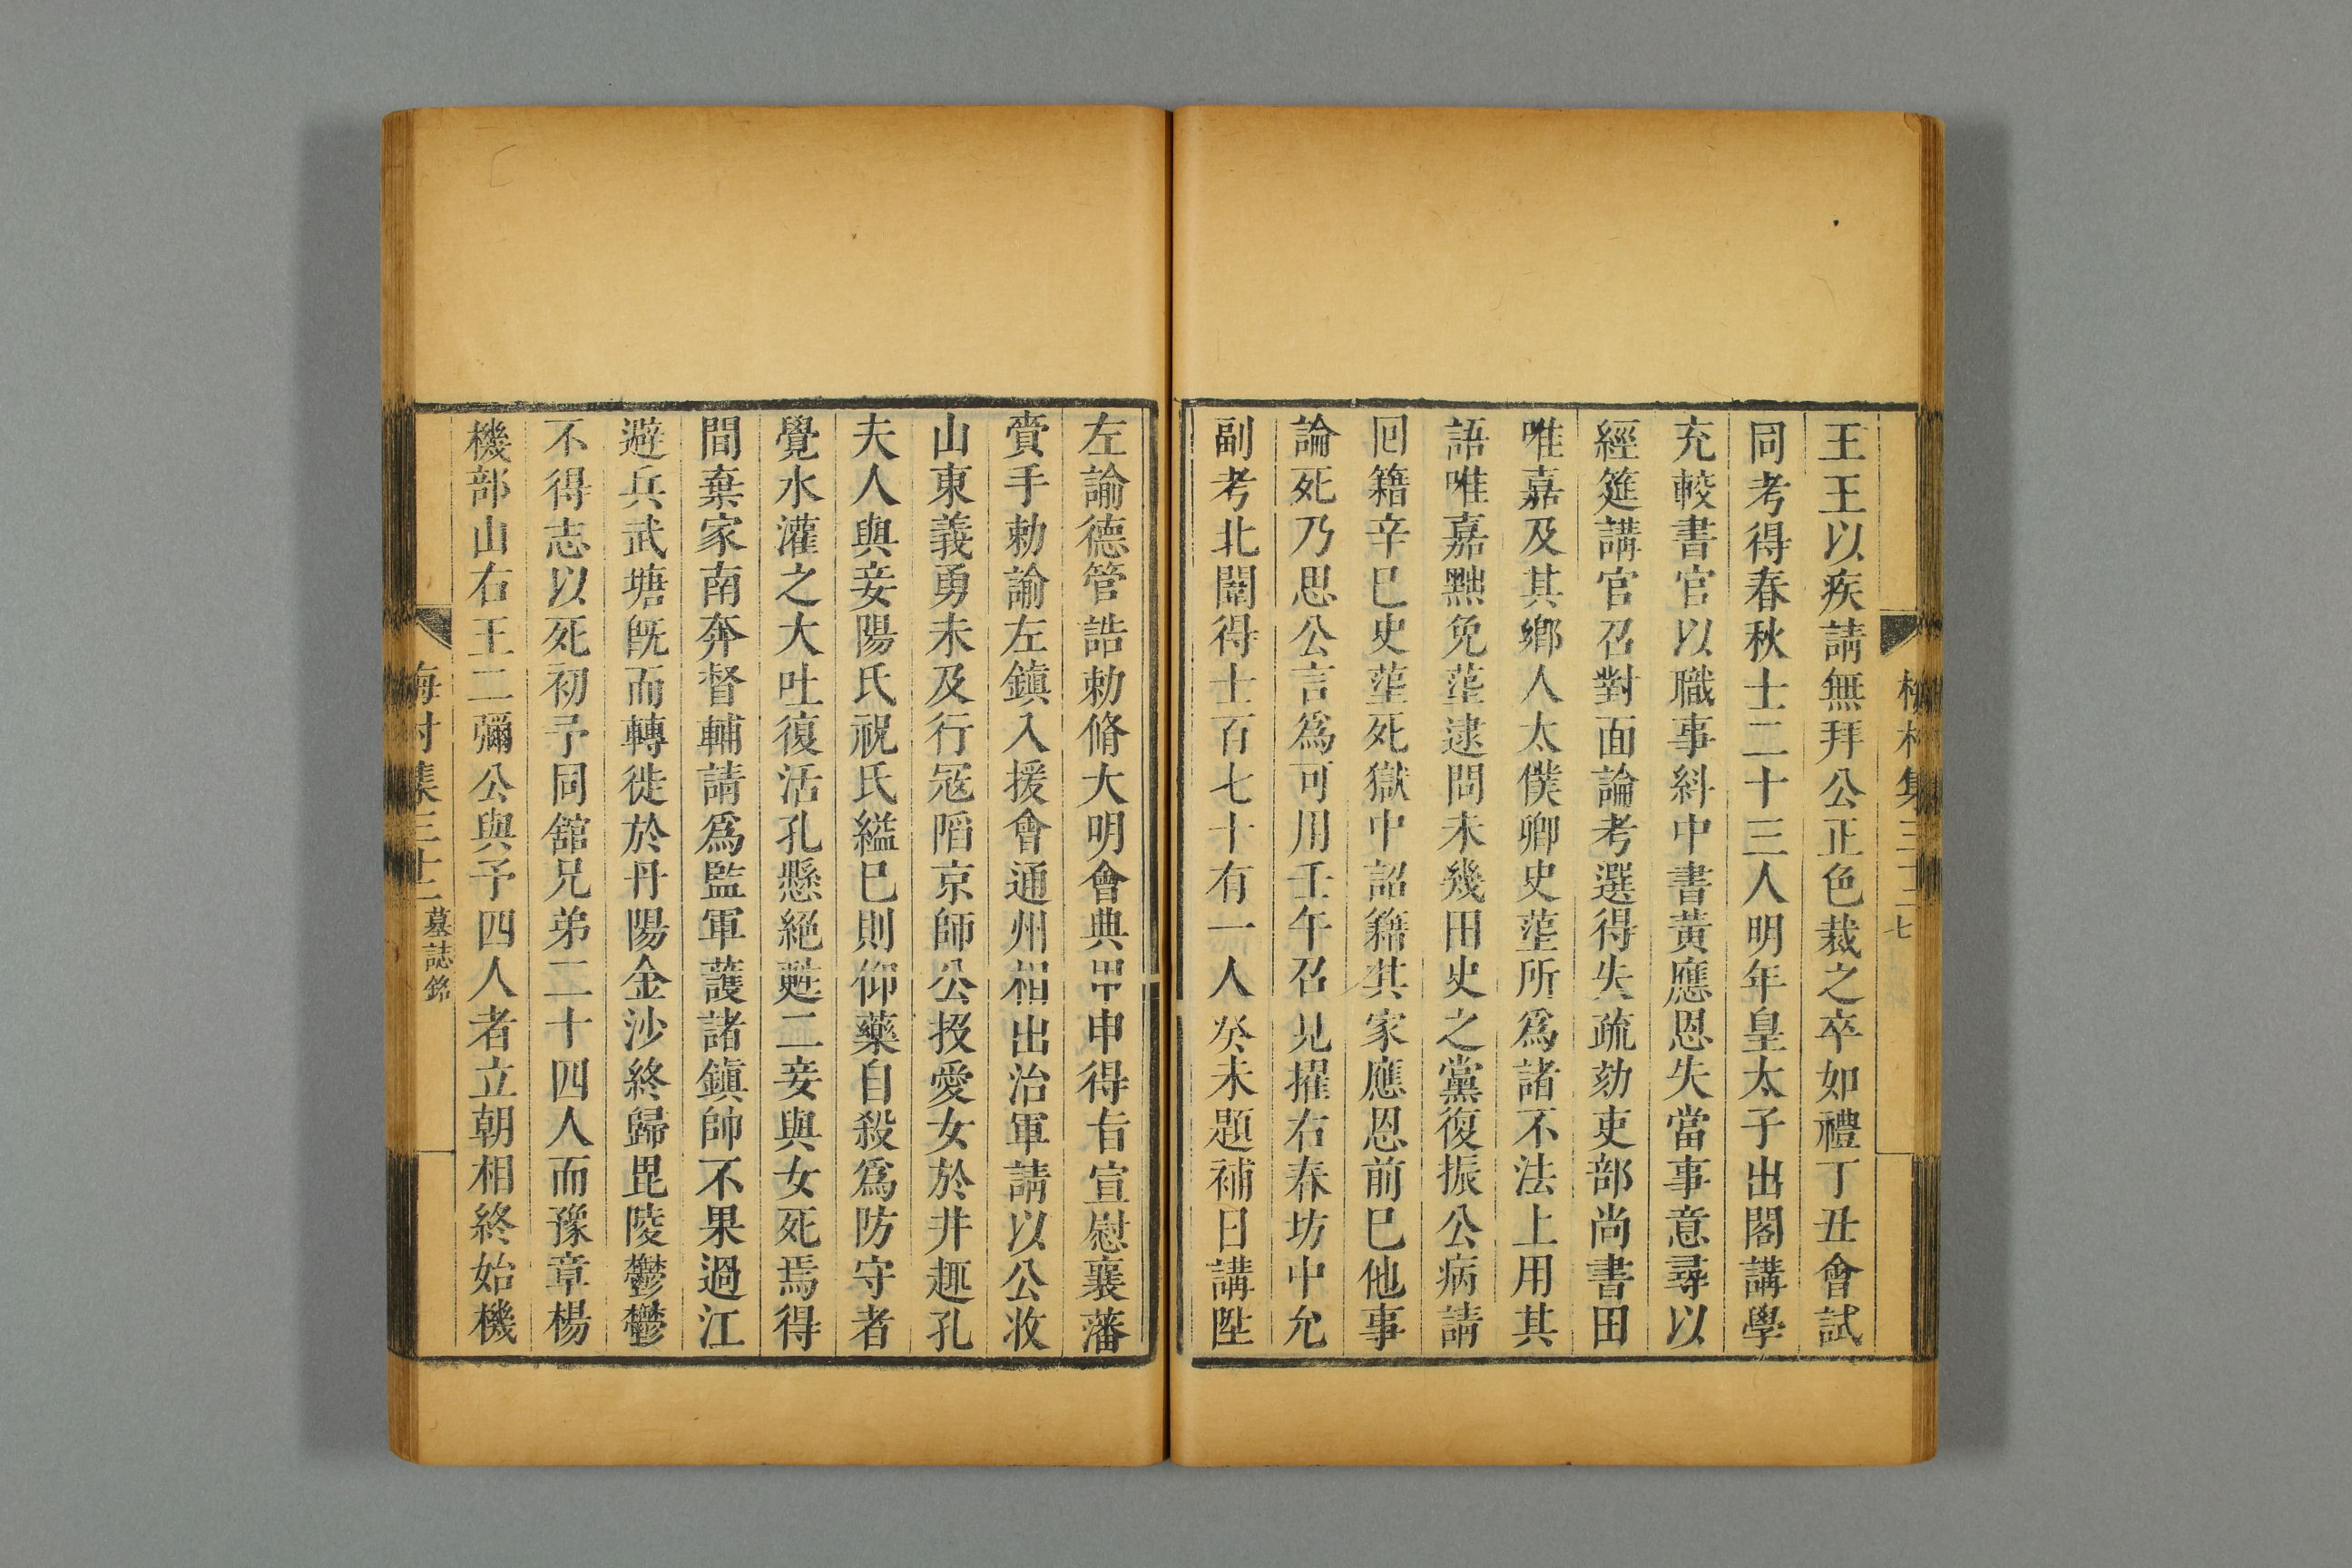 王王以疾請無拜公正色裁之卒如禮丁丑會試
同考得春秋士二十三人明年皇太子出閣講學
充較書官以職事糾中書黃應恩失當事意尋以
經筵講官召對面論考選得失疏劾吏部尚書田
唯嘉及其鄉人太僕卿史𡎊所爲諸不法上用其
語唯嘉黜免𡎊逮問未幾田史之黨復振公病請
囘籍辛巳史𡎊死獄中詔籍其家應恩前巳他事
論死乃思公言爲可用壬午召見擢右春坊中允
副考北闈得士百七十有一人癸未題補日講陞
左諭德管誥勅脩大明會典甲申得旨宣慰襄藩
賫手勅諭左鎮入援會通州相出治軍請以公收
山東義勇未及行冦陷京師公投愛女於井趣孔
夫人與妾陽氏祝氏縊巳則仰藥自殺爲防守者
覺水灌之大吐復活孔懸絕甦二妾與女死焉得
間棄家南奔督輔請爲監軍護諸鎮帥不果過江
避兵武塘旣而轉徙於丹陽金沙終歸毘陵鬱鬱
不得志以死初予同舘兄弟二十四人而豫章楊
機部山右王二彌公與予四人者立朝相終始機
梅村集三十二 墓誌銘 七